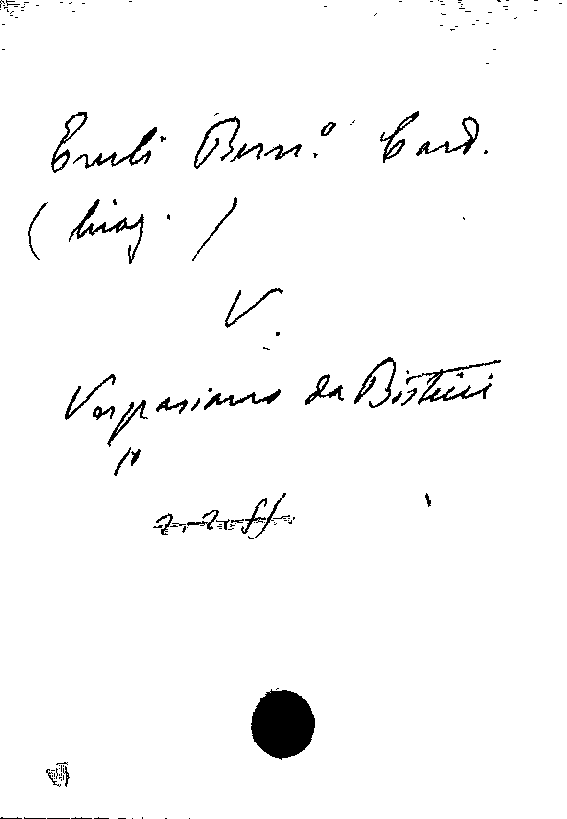 Eruli Bern.º Card.
(biog.)
V.
Vespasiano da Bisticci
"